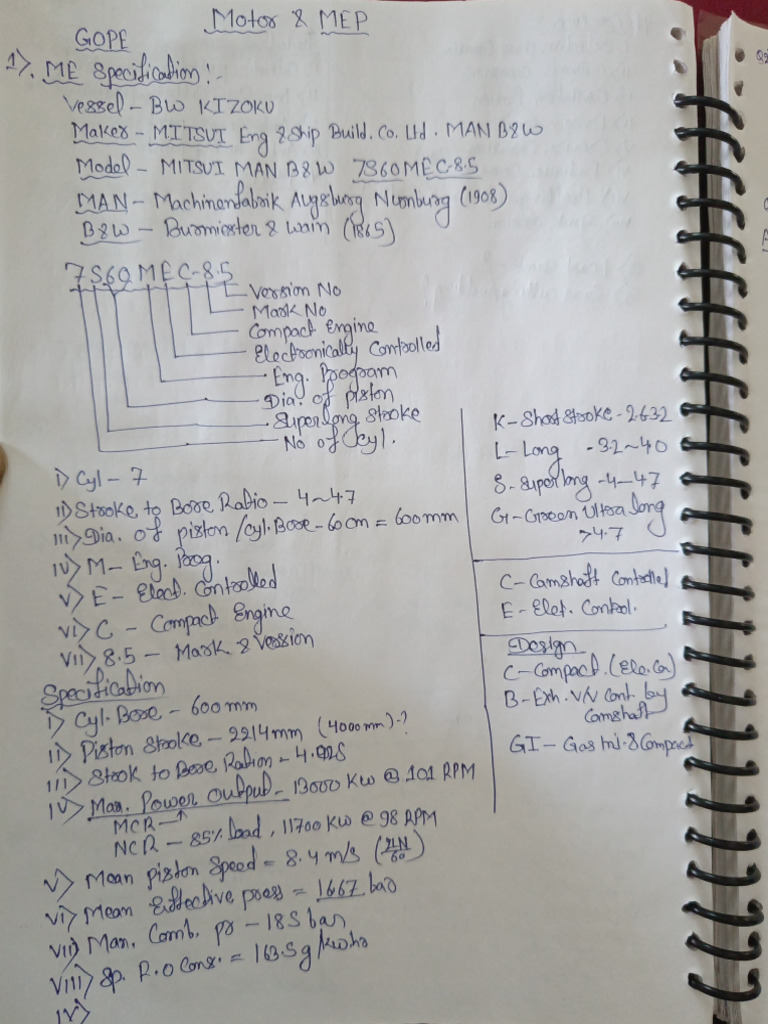 Motor & MEP
GOPE
1). ME Specification:-
Vessel - BW KIZOKU
Maker - MITSUI Eng & Ship Build. Co. Ltd. MAN B&W
Model - MITSUI MAN B&W 7S60MEC-8.5
MAN - Machinenfabrik Augsburg Nurnburg (1908)
B&W - Burmiester & Wain (1865)
7S60MEC-8.5
Version No
Mark No
Compact Engine
Electronically Controlled
Eng. Program
Dia. of piston
Superlong stroke
No of Cyl.
i) Cyl - 7
ii) Stroke to Bore Ratio - 4~47
iii) Dia. of piston /Cyl. Bore - 60 cm = 600mm
iv) M - Eng. Prog.
v) E - Elect. Controlled
vi) C - Compact Engine
vii) 8.5 - Mark & Version
K - Short stroke - 2.632
L - Long - 3.2~40
S - Superlong - 4-47
G - Green Ultra long
>4.7
C - Camshaft Controlled
E - Elet. Control.
Design
C - Compact. (Ele. Co)
B - Exh. V/V Cont. by
Camshaft
GI - Gas Inl. & Compact
Specification
i) Cyl. Bore - 600mm
ii) Piston Stroke - 2214mm (4000mm)-?
iii) Strok to Bore Ration -
iv) Max. Power Output - 13000 KW @ 101 RPM
MCR
NCR - 85% load, 11700 KW @ 98 RPM
v) Mean piston Speed = 8.4 m/s (2LN/60)
vi) Mean Effective press = 1667 bar
vii) Max. Comb. pr - 185 bar
viii) Sp. F.O Cons. = 163.5 g/kwhr
iv)